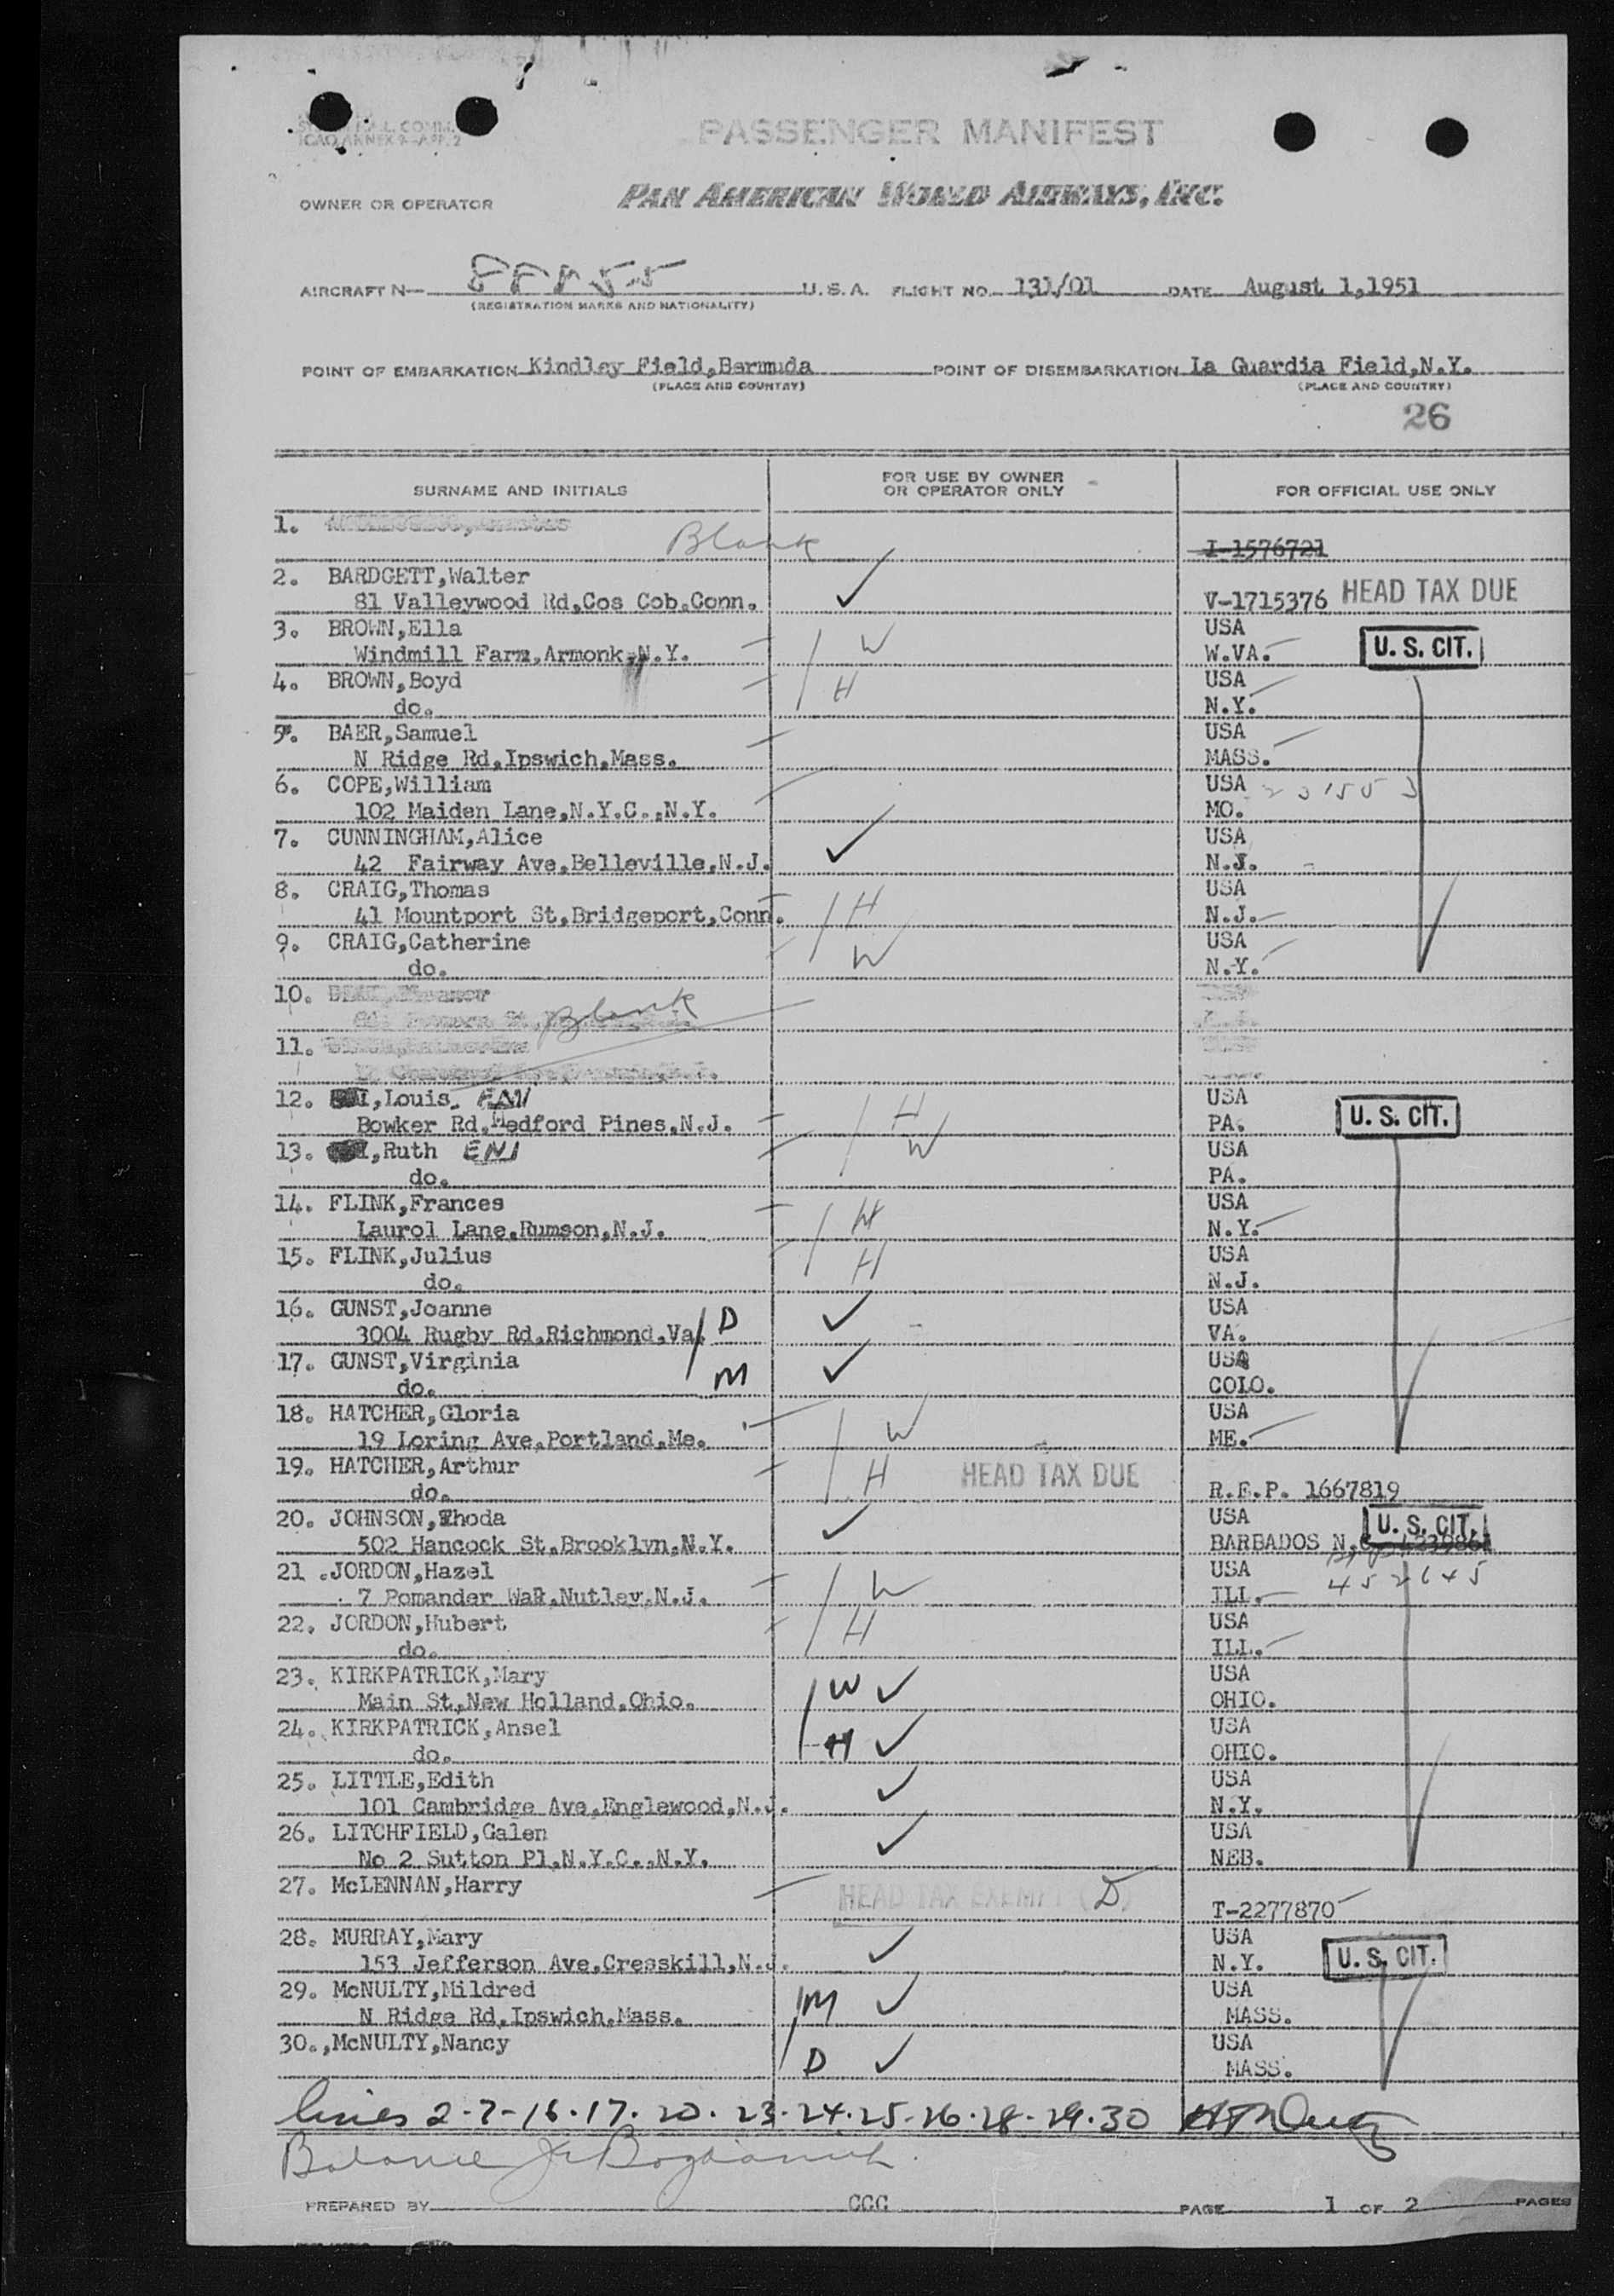 ICAO ANNEX 9-APP. 2
PASSENGER MANIFEST
OWNER OR OPERATOR PAN AMERICAN WORLD AIRWAYS, INC.
AIRCRAFT N— U.S.A. FLIGHT NO. 131/01 DATE August 1,1951
(REGISTRATION MARKS AND NATIONALITY)
POINT OF EMBARKATION Kindley Field,Bermuda POINT OF DISEMBARKATION La Guardia Field,N.Y.
(PLACE AND COUNTRY) (PLACE AND COUNTRY)
26
SURNAME AND INITIALS FOR USE BY OWNER OR OPERATOR ONLY FOR OFFICIAL USE ONLY
1. Blank
I-1576721
2. BARDGETT,Walter
81 Valleywood Rd,Cos Cob.Conn. V-1715376 HEAD TAX DUE
3. BROWN,Ella W USA
Windmill Farm,Armonk,N.Y. W.VA. U. S. CIT.
4. BROWN,Boyd H USA
do. N.Y.
5. BAER,Samuel USA
N Ridge Rd,Ipswich,Mass. MASS.
6. COPE,William USA
102 Maiden Lane,N.Y.C.,N.Y. MO.
7. CUNNINGHAM,Alice USA
42 Fairway Ave,Belleville,N.J. N.J.
8. CRAIG,Thomas H USA
41 Mountport St,Bridgeport,Conn. N.J.
9. CRAIG,Catherine W USA
do. N.Y.
10. Blank
11.
12. I,Louis. ENI H USA
Bowker Rd,Medford Pines,N.J. PA. U. S. CIT.
13. I,Ruth ENI W USA
do. PA.
14. FLINK,Frances W USA
Laurol Lane,Rumson,N.J. N.Y.
15. FLINK,Julius H USA
do. N.J.
16. GUNST,Joanne D USA
3004 Rugby Rd,Richmond,Va. VA.
17. GUNST,Virginia M USA
do. COLO.
18. HATCHER,Gloria W USA
19 Loring Ave,Portland,Me. ME.
19. HATCHER,Arthur H HEAD TAX DUE
do. R.E.P. 1667819
20. JOHNSON,Rhoda USA U. S. CIT.
502 Hancock St,Brooklyn,N.Y. BARBADOS
21. JORDON,Hazel W USA 452645
7 Pomander Walk,Nutley,N.J. ILL.
22. JORDON,Hubert H USA
do. ILL.
23. KIRKPATRICK,Mary W USA
Main St,New Holland,Ohio. OHIO.
24. KIRKPATRICK,Ansel H USA
do. OHIO.
25. LITTLE,Edith USA
101 Cambridge Ave,Englewood,N.J. N.Y.
26. LITCHFIELD,Galen USA
No 2 Sutton Pl,N.Y.C.,N.Y. NEB.
27. McLENNAN,Harry HEAD TAX EXEMPT (D)
T-2277870
28. MURRAY,Mary USA
153 Jefferson Ave,Cresskill,N.J. N.Y. U. S. CIT.
29. McNULTY,Mildred M USA
N Ridge Rd,Ipswich,Mass. MASS.
30.,McNULTY,Nancy USA
D MASS.
lines 2-7-16-17-20-23-24-25-26-28-29-30
Balance
PREPARED BY CCC PAGE 1 OF 2 PAGES